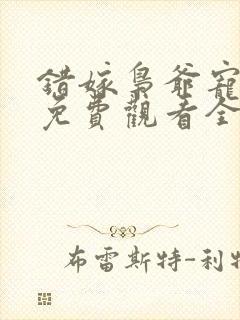 錯嫁梟爺寵
免費觀看全
布雷斯特-利特